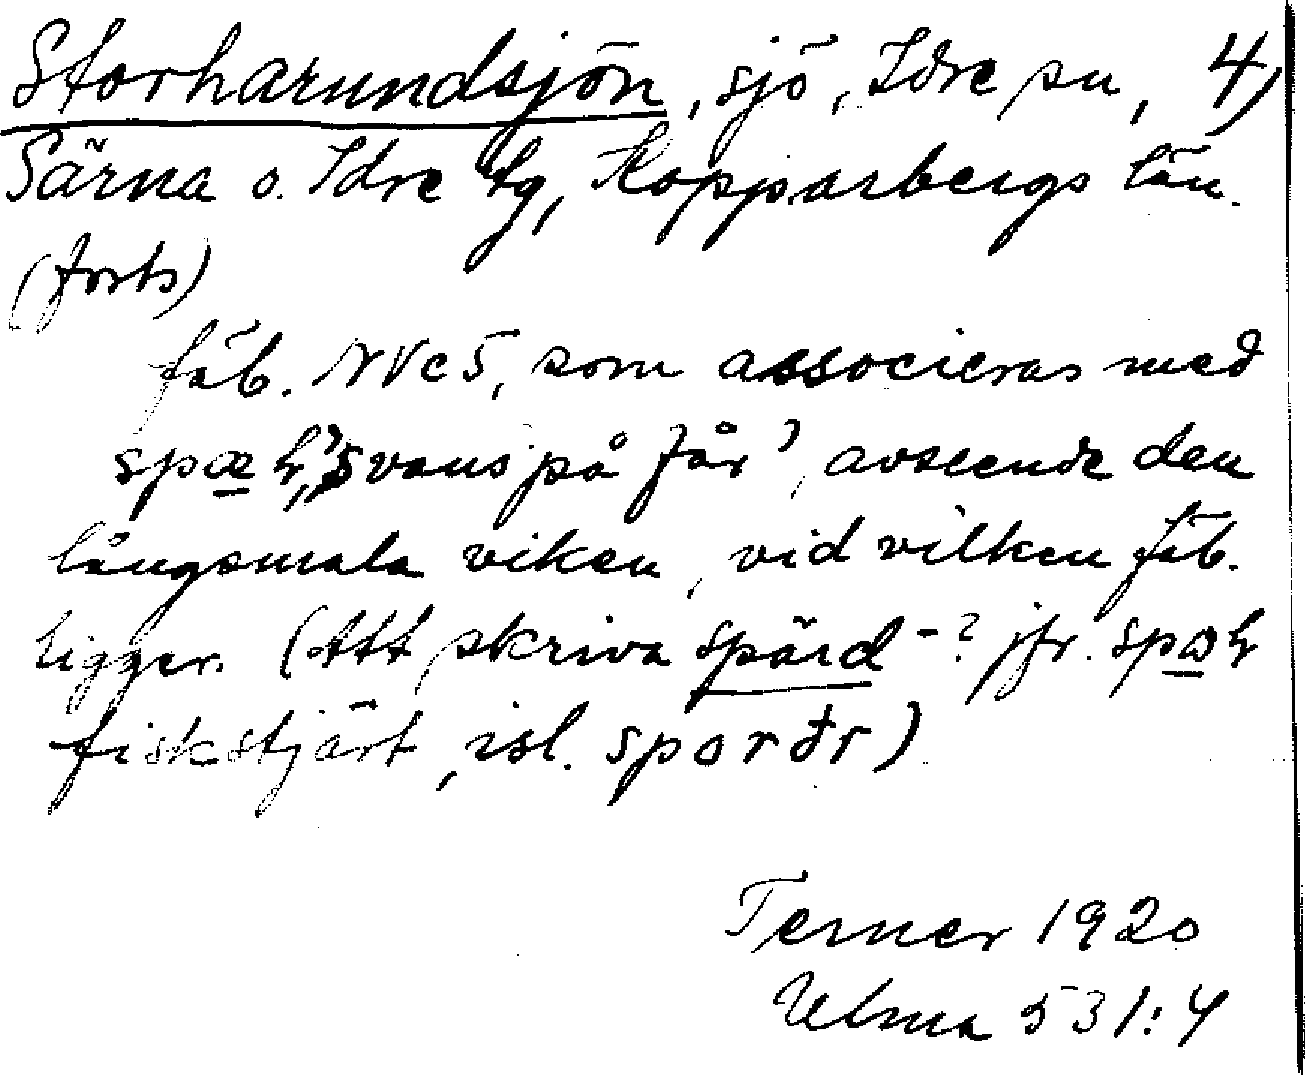 Storharundsjön, sjö, Idre sn, 4)
Särna o. Idre tg, Kopparbergs län.
(forts)
fäb. NVc5, som associeras med
spæɫ, 'svans på får', avseende den
långsmala viken, vid vilken fäb.
ligger. (Att skriva spärd-? jfr. spæɫ
fiskstjärt, isl. sporðr)
Terner 1920
Ulma 531:4